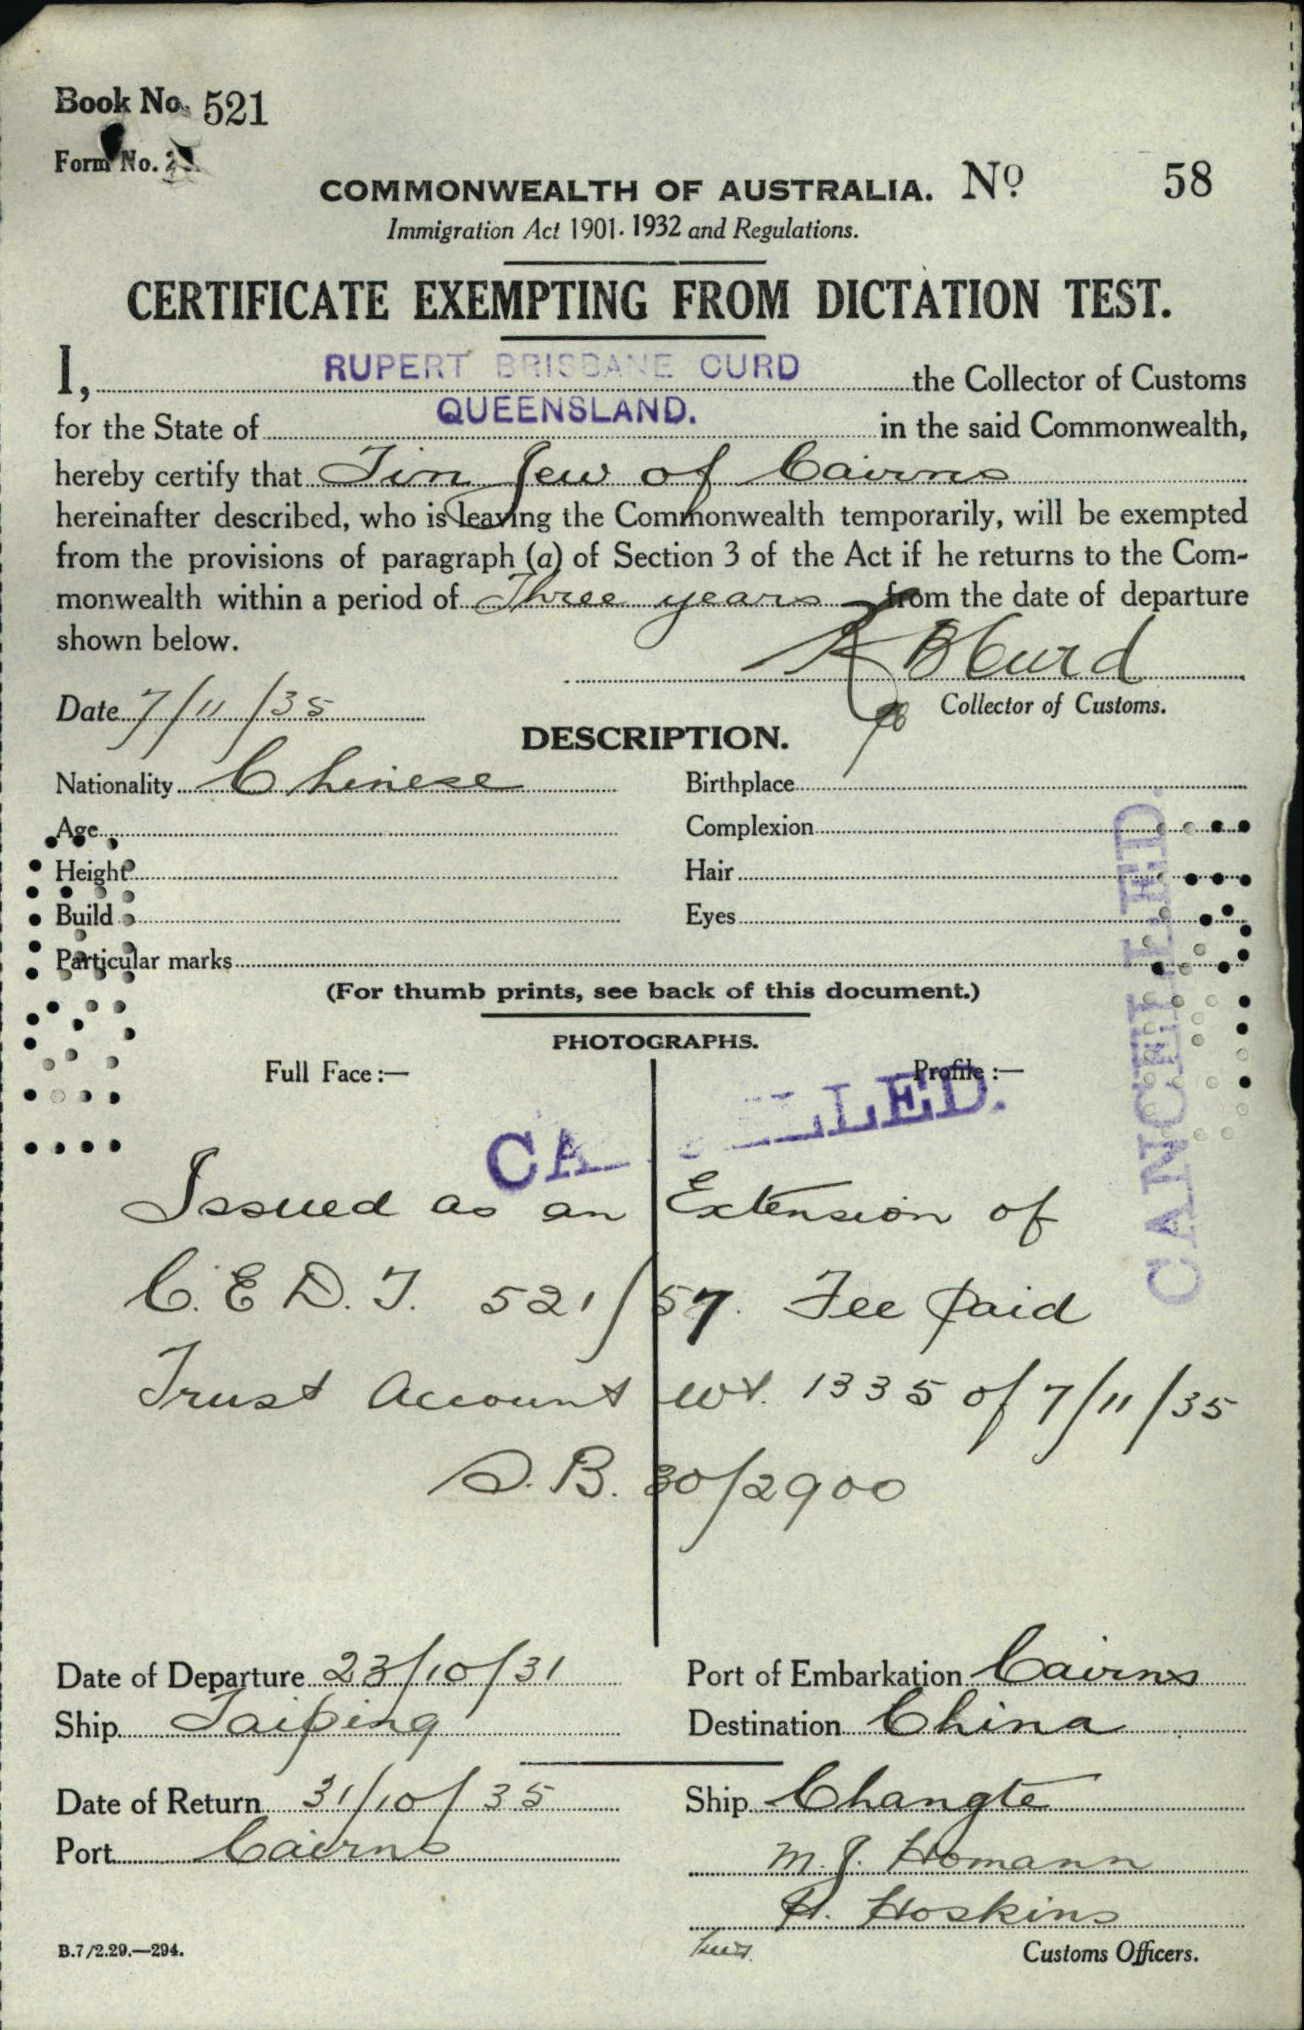 Book No. 521
Form No. 2
COMMONWEALTH OF AUSTRALIA. No 58
Immigration Act 1901-1932 and Regulations.
CERTIFICATE EXEMPTING FROM DICTATION TEST.
I, RUPERT BRISBANE CURD the Collector of Customs
for the State of QUEENSLAND. in the said Commonwealth,
hereby certify that Tin Jew of Cairns
hereinafter described, who is leaving the Commonwealth temporarily, will be exempted
from the provisions of paragraph (a) of Section 3 of the Act if he returns to the Com-
monwealth within a period of Three years from the date of departure
shown below.
R B Curd
Date 7/11/35 Collector of Customs.
DESCRIPTION.
Nationality Chinese Birthplace
Age Complexion
Height Hair
Build Eyes
Particular marks
(For thumb prints, see back of this document.)
PHOTOGRAPHS.
Full Face:— Profile:—
CANCELLED.
CA LLED.
Issued as an Extension of
C.E.D.T. 521/57. Fee paid
Trust Account Wt. 1335 of 7/11/35
S.B. 30/2900
Date of Departure 23/10/31 Port of Embarkation Cairns
Ship Taiping Destination China
Date of Return 31/10/35 Ship Changte
Port Cairns M. J. Homann
H. Hoskins
B.7/2.29.—294. Customs Officers.